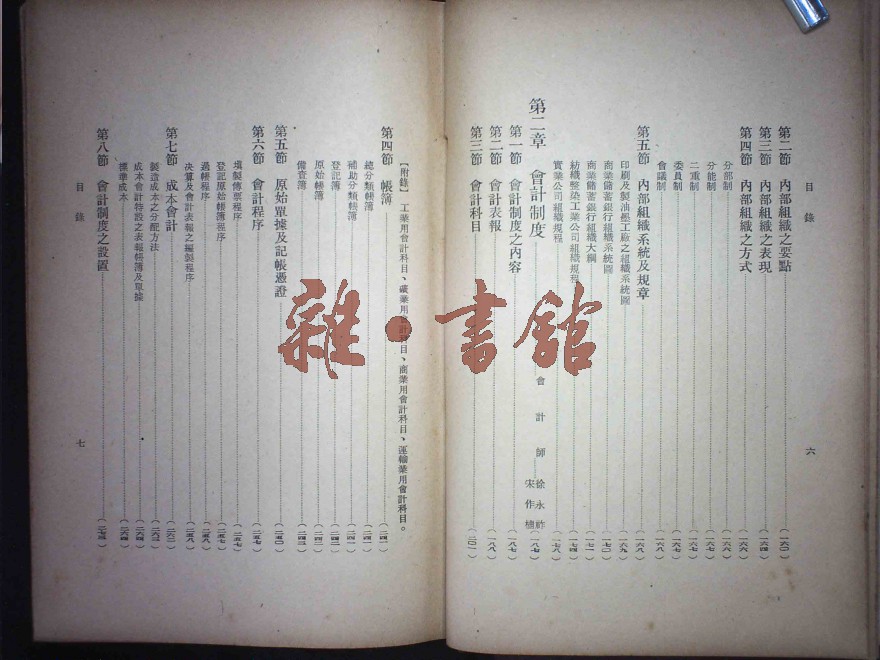 目錄
六
第二節 內部組織之要點……(一六〇)
第三節 內部組織之表現……(一六四)
第四節 內部組織之方式……(一六六)
分部制……(一六六)
分能制……(一六六)
二重制……(一六七)
委員制……(一六七)
會議制……(一六八)
第五節 內部組織系統及規章……(一六八)
印刷及製油墨工廠之組織系統圖……(一六九)
商業儲蓄銀行組織系統圖……(一七〇)
商業儲蓄銀行組織大綱……(一七一)
紡織整染工業公司組織規程……(一七四)
實業公司組織規程……(一七八)
第二章 會計制度……會計師 徐永祚 宋作楠……(一八七)
第一節 會計制度之內容……(一八七)
第二節 會計表報……(一八八)
第三節 會計科目……(二〇一)
【附錄】工業用會計科目、礦業用會計科目、商業用會計科目、運輸業用會計科目。
第四節 帳簿……(二四一)
總分類帳簿……(二四一)
補助分類帳簿……(二四一)
登記簿……(二四二)
原始帳簿……(二四二)
備查簿……(二四三)
第五節 原始單據及記帳憑證……(二五〇)
第六節 會計程序……(二五七)
填製傳票程序……(二五七)
登記原始帳簿程序……(二五七)
過帳程序……(二五八)
決算及會計表報之編製程序……(二五八)
第七節 成本會計……(二六二)
製造成本之分配方法……(二六三)
成本會計特設之表報帳簿及單據……(二六四)
標準成本……(二六四)
第八節 會計制度之設置……(二七三)
目錄
七
雜·書館